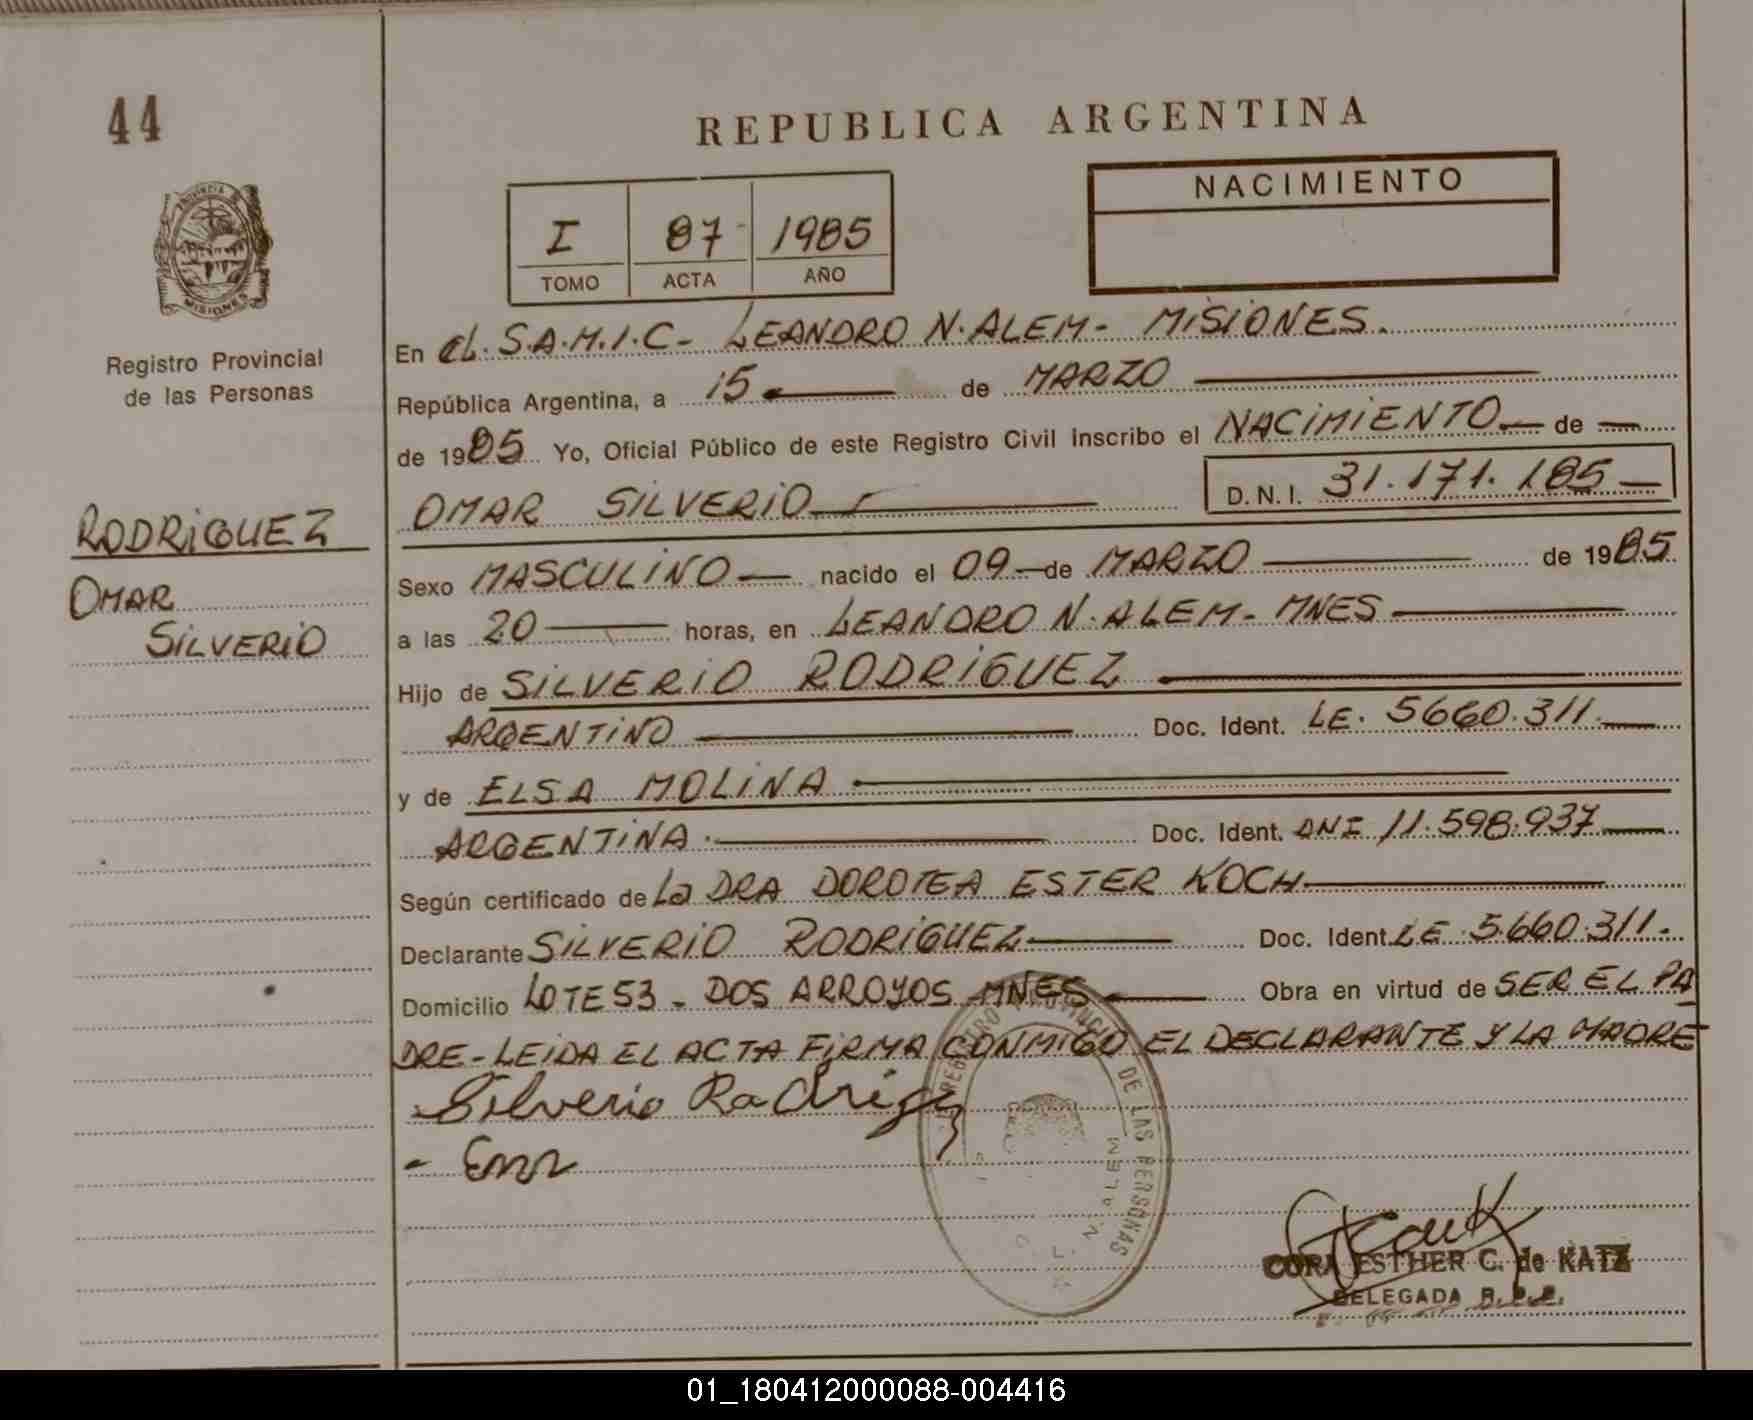 44
REPUBLICA ARGENTINA
NACIMIENTO
I 87 1985
TOMO ACTA AÑO
MISIONES
Registro Provincial
de las Personas
RODRIGUEZ
OMAR
SILVERIO
En el. S.A.M.I.C- LEANDRO N. ALEM- MISIONES.
República Argentina, a 15 de MARZO
de 1985 Yo, Oficial Público de este Registro Civil inscribo el NACIMIENTO de
OMAR SILVERIO D.N.I. 31.171.185
Sexo MASCULINO nacido el 09 de MARZO de 1985
a las 20 horas, en LEANDRO N. ALEM- MNES
Hijo de SILVERIO RODRIGUEZ
ARGENTINO Doc. Ident. LE. 5660.311
y de ELSA MOLINA
ARGENTINA Doc. Ident. DNI 11.598.937
Según certificado de La DRA DOROTEA ESTER KOCH
Declarante SILVERIO RODRIGUEZ Doc. Ident. LE 5.660.311.
Domicilio LOTE 53 - DOS ARROYOS MNES Obra en virtud de SER EL PA
DRE-LEIDA EL ACTA FIRMA CONMIGO EL DECLARANTE Y LA MADRE
Silverio Rodrigez
REGISTRO PROVINCIAL DE LAS PERSONAS
N. ALEM
CORA ESTHER C. de KATZ
DELEGADA R.P.P.
01_180412000088-004416